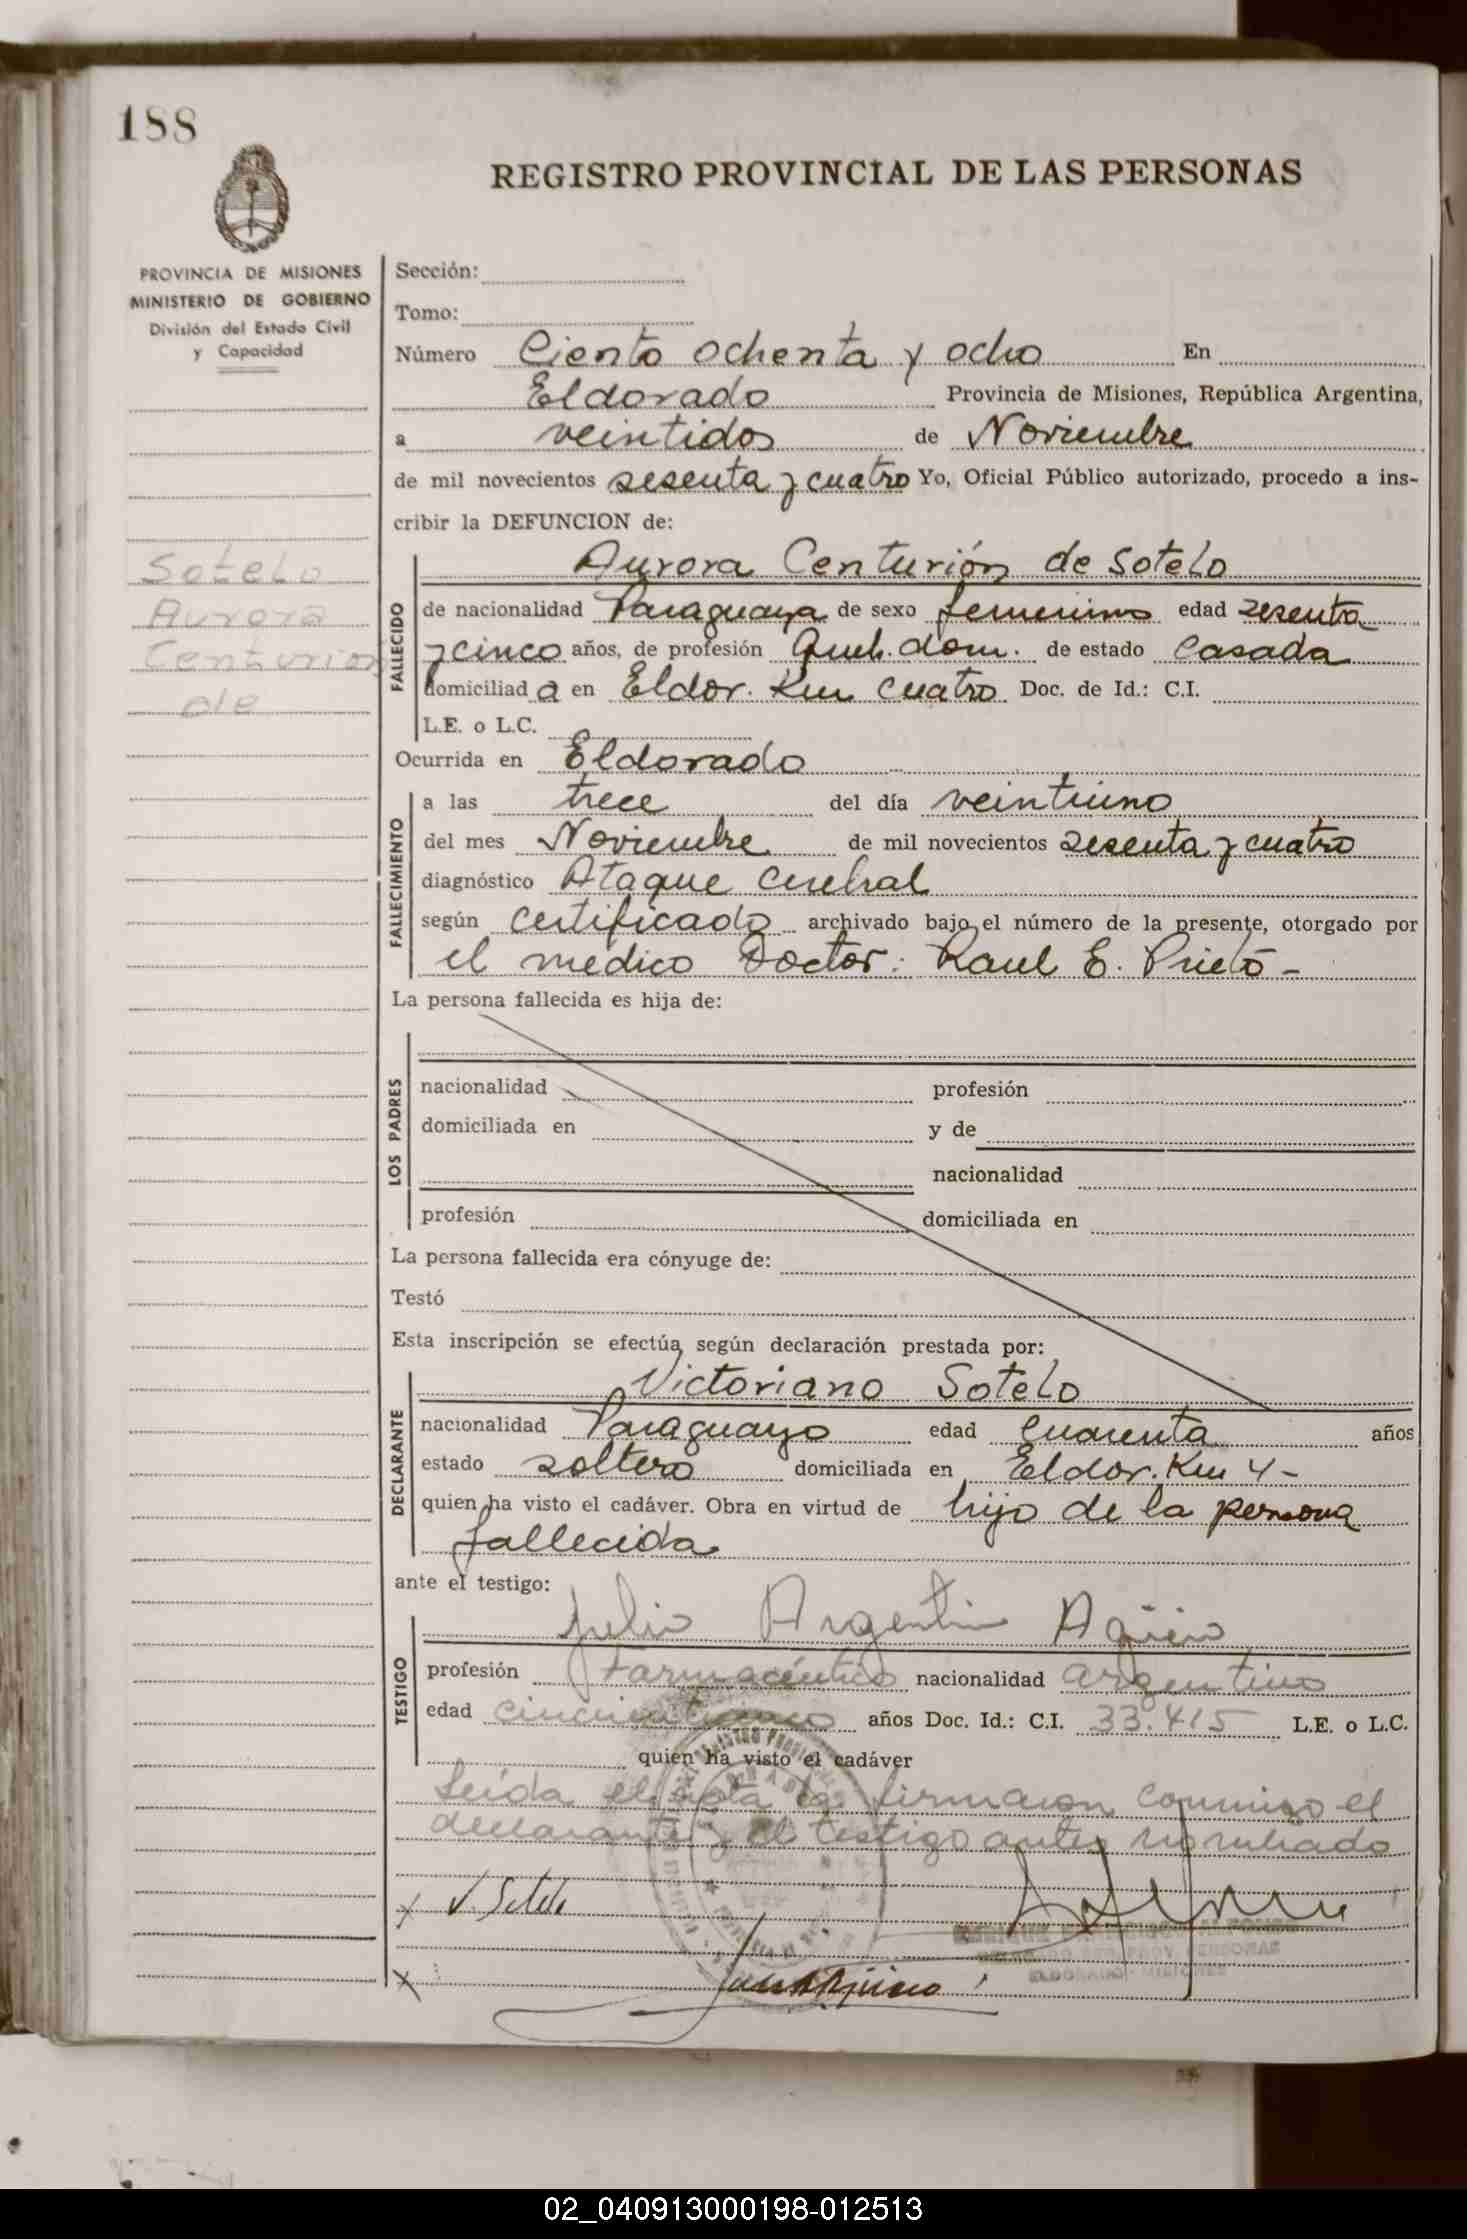 188
REGISTRO PROVINCIAL DE LAS PERSONAS
PROVINCIA DE MISIONES
MINISTERIO DE GOBIERNO
División del Estado Civil
y Capacidad
Sotelo
Aurora
Centurión
de
Sección:
Tomo:
Número Ciento ochenta y ocho En
Eldorado Provincia de Misiones, República Argentina,
a veintidos de Noviembre
de mil novecientos sesenta y cuatro Yo, Oficial Público autorizado, procedo a ins-
cribir la DEFUNCION de:
FALLECIDO
Aurora Centurión de Sotelo
de nacionalidad Paraguaya de sexo femenino edad sesenta
y cinco años, de profesión Queh. dom. de estado Casada
domiciliad a en Eldor. Km cuatro Doc. de Id.: C.I.
L.E. o L.C.
Ocurrida en Eldorado
FALLECIMIENTO
a las trece del día veintiuno
del mes Noviembre de mil novecientos sesenta y cuatro
diagnóstico Ataque cerebral
según certificado archivado bajo el número de la presente, otorgado por
el medico Doctor: Raul E. Prieto -
La persona fallecida es hija de:
LOS PADRES
nacionalidad profesión
domiciliada en y de
nacionalidad
profesión domiciliada en
La persona fallecida era cónyuge de:
Testó
Esta inscripción se efectúa según declaración prestada por:
DECLARANTE
Victoriano Sotelo
nacionalidad Paraguayo edad cuarenta años
estado soltero domiciliada en Eldor. Km 4 -
quien ha visto el cadáver. Obra en virtud de hijo de la persona
fallecida
ante el testigo:
TESTIGO
Julio Argentin Agüero
profesión Farmacéutico nacionalidad argentino
edad años Doc. Id.: C.I. 33.415 L.E. o L.C.
quien ha visto el cadáver
Leida el acta la firmaron conmigo el
declarante y el testigo antes nombrado
x V. Sotelo
x
02_040913000198-012513